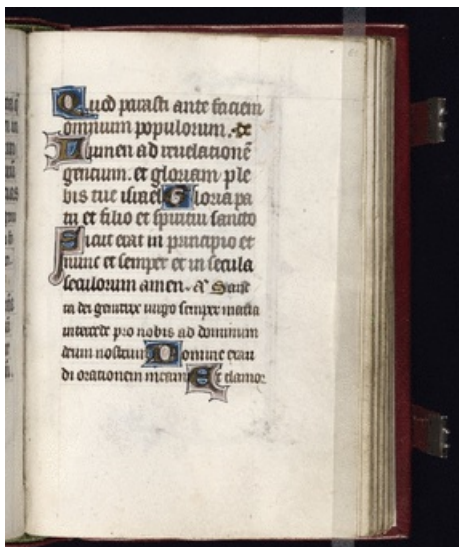 Quod parasti ante faciem
omnium populorum. &
Lumen ad reuelationē
gentium. et gloriam ple
bis tue israel Gloria pa
tri et filio et spiritui sancto
Sicut erat in principio et
nunc et semper et in secula
seculorum amen. Aͣ Sanc
ta dei genitrix uirgo semper maria
intercede pro nobis ad dominum
deum nostrum Domine exau
di orationem meam Et clamor